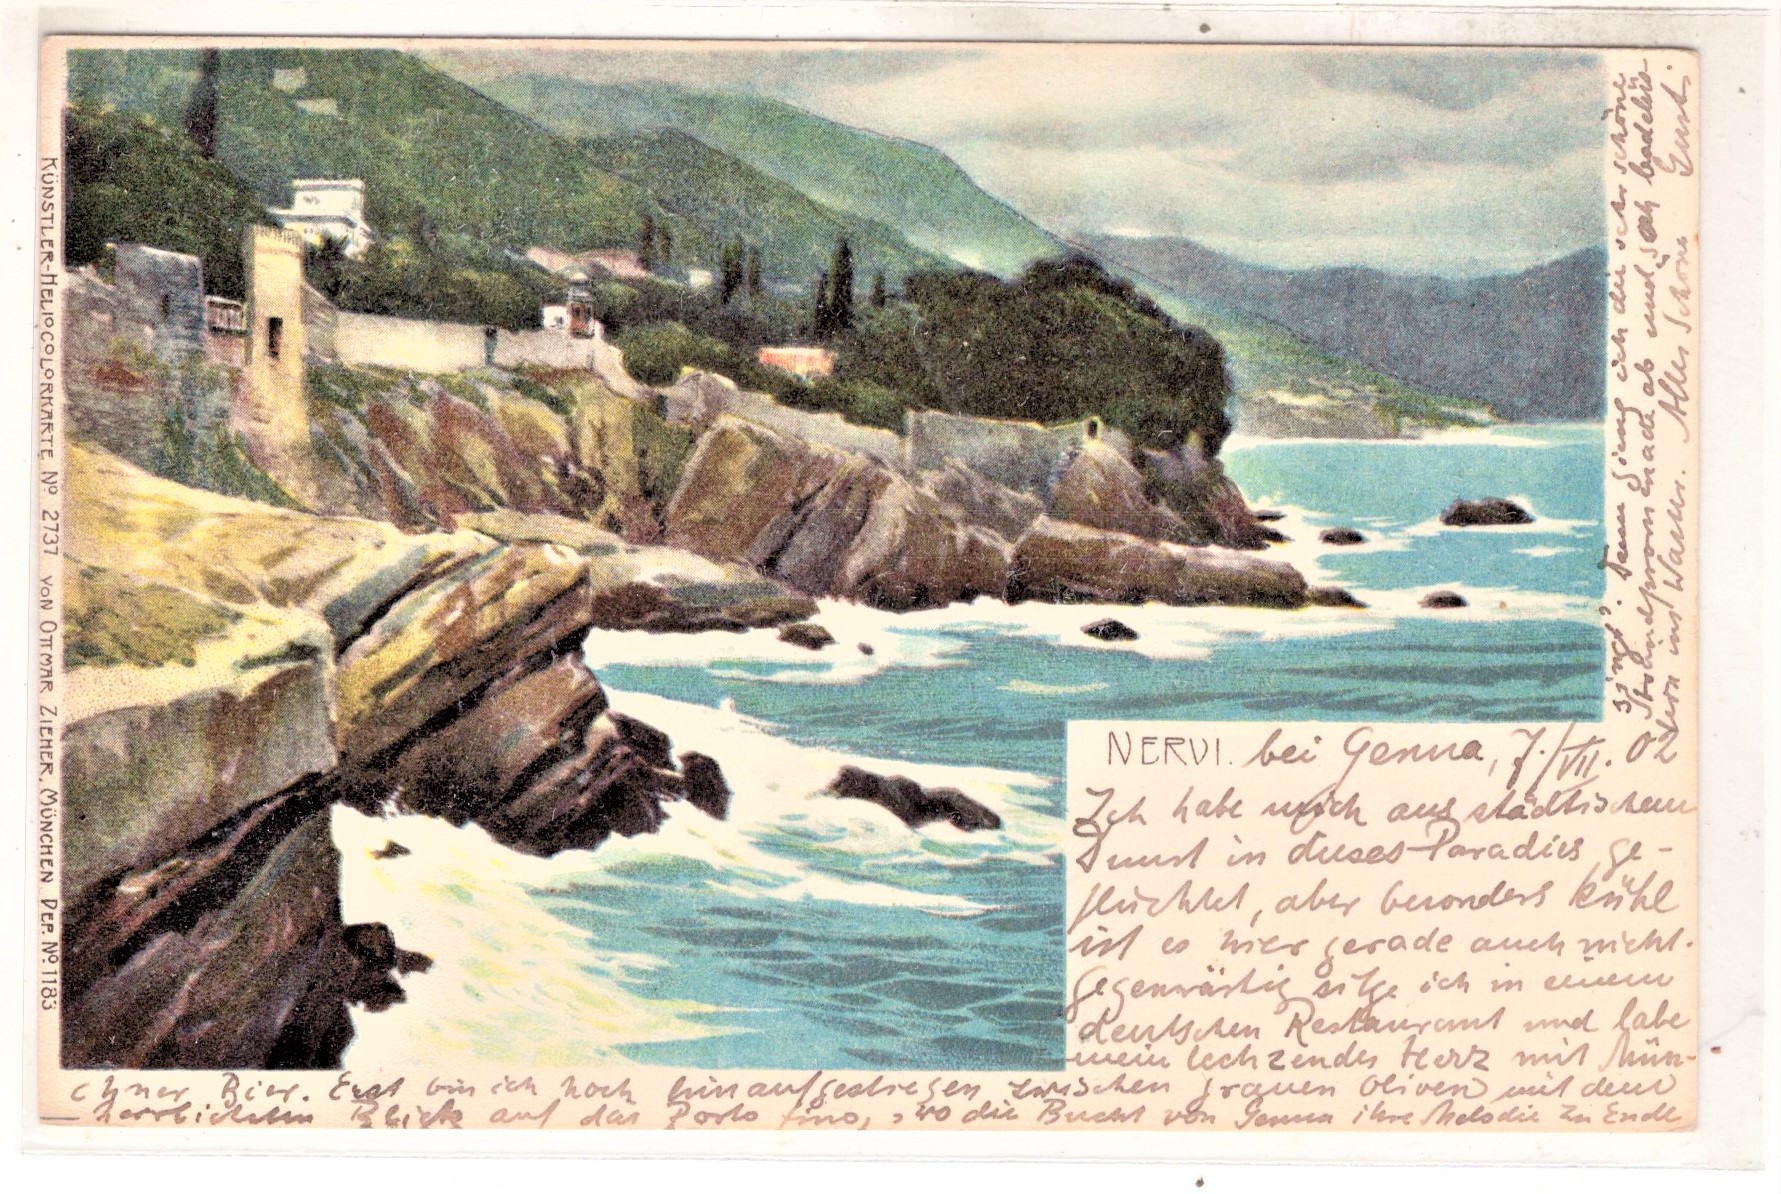 KÜNSTLER-HELIOCOLORKARTE Nº 2737 VON OTTMAR ZIEHER, MÜNCHEN DEP. Nº 1183
NERVI. bei Genua, 7./VII. 02
Ich habe mich aus städtischem
Dunst in dieses Paradies ge-
flüchtet, aber besonders kühl
ist es hier gerade auch nicht.
Gegenwärtig sitze ich in einem
deutschen Restaurant und labe
mein lechzendes Herz mit Mün-
chner Bier. Erst bin ich hoch hinaufgestiegen zwischen grauen Oliven mit dem
herrlichsten Blick auf das Porto fino, „wo die Bucht von Genua ihre Melodie zu Ende
singt“. Dann ging ich die sehr schöne
Strandpromenade ab und sah
ins Wasser. Alles Schöne Ernst.